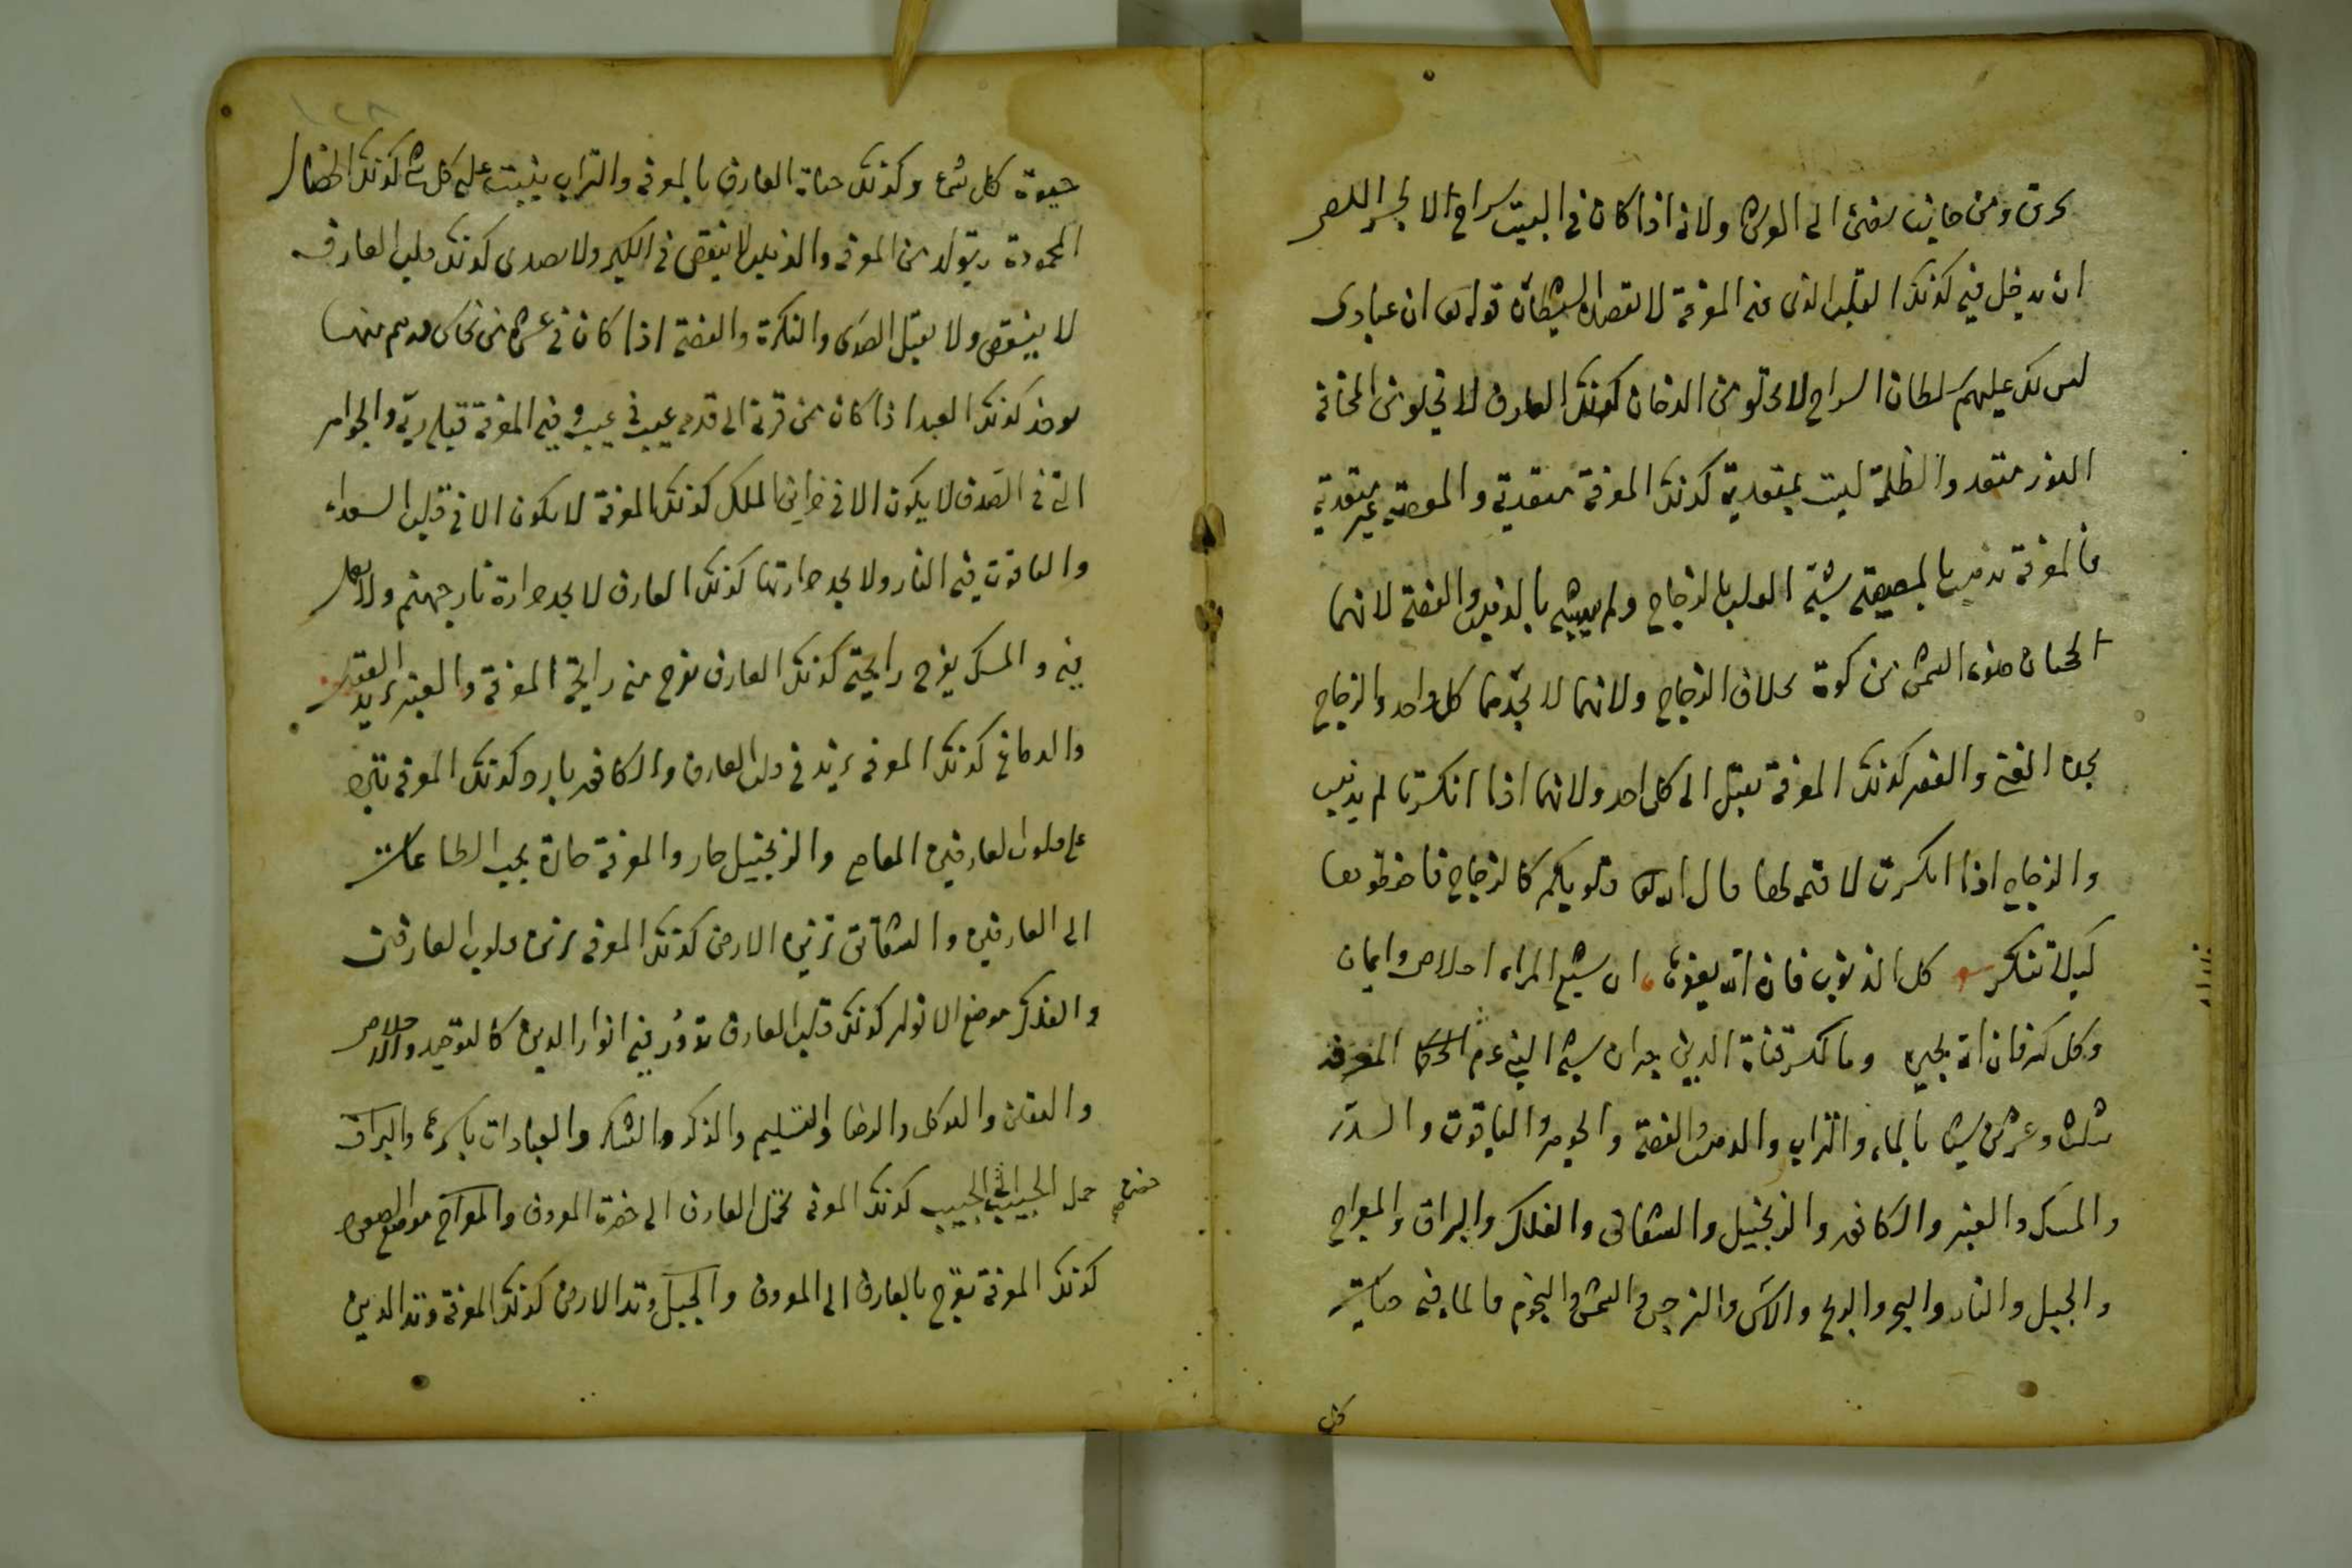 يحرق ومن جانب يضئ الى العرش ولانه اذا كان في البيت سراج لا يجسر اللص
ان يدخل فيه كذلك القلب الذى فيه المعرفة لا يقصده الشيطان قوله تعالى ان عبادى
ليس لك عليهم سلطان السراج لا يخلو من الدخان كذلك العارف لا يخلو من المخافة
النور متعد والظلمة ليست بمتعدية كذلك المعرفة متعدية والمعصية غير متعدية
فالمعرفة تذهب بالمعصية شبه القلب بالزجاج ولم يشبه بالذهب والفضة لانهما
ضوء الشمس من كوة بخلاف الزجاج ولانهما لا يجدهما كل واحد والزجاج
يجده الغني والفقير كذلك المعرفة تقبل الى كل احد ولانهما اذا انكسرتا لم يذهب
والزجاج اذا انكسرت لا قيمة لها قال الله تعالى قلوبكم كالزجاج فاحفظوها
كيلا تنكسر كل الذنوب فان الله يغفرها ان شيع المراء اخلاص وايمان
وكل كسر فان الله يجبره وما لكسر قناة الدين جبران شبه النبي عم المعرفة
بثلثة وعشرين شيئا بالماء والتراب والذهب والفضة والجوهر والياقوت و
والمسك والعنبر والكافور والزنجبيل والشقائق والفلك والبراق والمعراج
والجبل والنار والبحر والريح والآس والنرجس والشمس والنجوم فالماء فيه حياة
كل
حيوة كل شئ وكذلك حياة العارف بالمعرفة والتراب ينبت عليه كل شئ كذلك الخصال
المحمودة يتولد من المعرفة والذهب لا ينقص في الكير ولا يصدى كذلك قلب العارف
لا ينقص ولا يقبل الصدى والنكرة والفضة اذا كان في عشرة من نحاس درهم منها
يوخذ كذلك العبد اذا كان من قرنه الى قدمه عيب في عيب وفيه المعرفة قبله ربه والجواهر
التي في الصدف لا يكون الا في خزاين الملك كذلك المعرفة لا يكون الا في قلب السعداء
والياقوت فيه النار ولا يجد حرارتها كذلك العارف لا يجد حرارة نار جهنم ولا يعمل
فيه والمسك يفوح رايحته كذلك العارف يفوح منه رايحة المعرفة والعنبر يزيد العقل
والدماغ كذلك المعرفة يزيد في قلب العارف والكافور بارد كذلك المعرفة تبرد
على قلوب العارفين المعاصي والزنجبيل حار والمعرفة حارة يحبب الطاعات
الى العارفين والشقائق تزين الارض كذلك المعرفة تزين قلوب العارفين
والفلك موضع الانوار كذلك قلب العارف تدور فيه انوار الدين كالتوحيد والاخلاص
واليقين والتوكل والرضا والتسليم والذكر والشكر والعبادات باسرها والبراق
حمل الحبيب الى الحبيب كذلك المعرفة تحمل العارف الى حضرة المعروف والمعراج موضع الصعود
حضرت صح
كذلك المعرفة تعرج بالعارف الى المعروف والجبل وتد الارض كذلك المعرفة وتد الدين